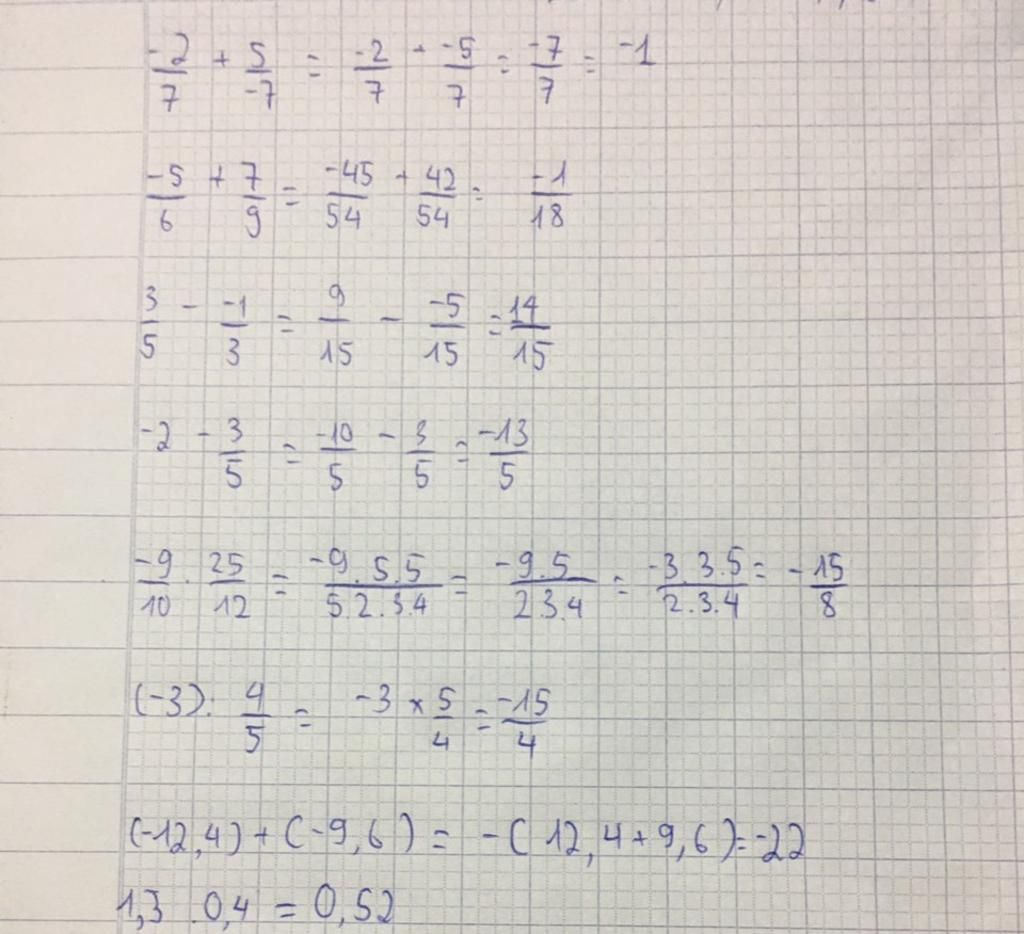 -2/7 + 5/-7 = -2/7 + -5/7 = -7/7 = -1
-5/6 + 7/9 = -45/54 + 42/54 = -1/18
3/5 - -1/3 = 9/15 - -5/15 = 14/15
-2 - 3/5 = -10/5 - 3/5 = -13/5
-9/10 . 25/12 = -9.5.5/5.2.3.4 = -9.5/2.3.4 = -3.3.5/2.3.4 = -15/8
(-3): 4/5 = -3 × 5/4 = -15/4
(-12,4) + (-9,6) = -(12,4 + 9,6) = -22
1,3 . 0,4 = 0,52